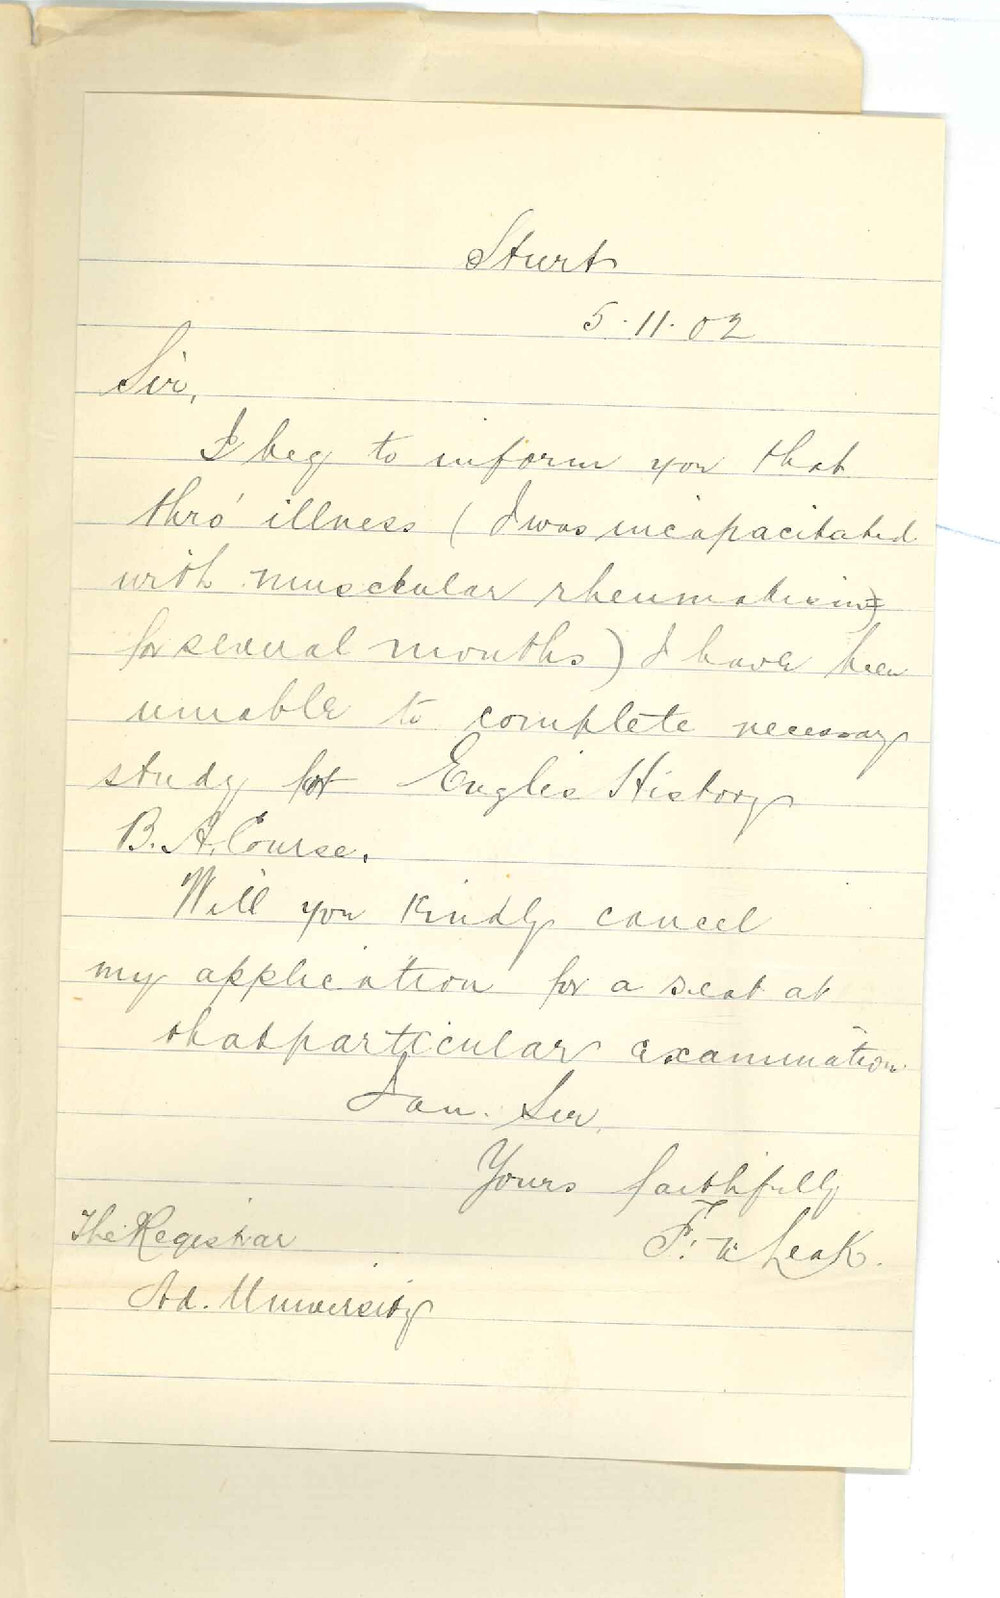 Sturt
5.11.02
Sir,
I beg to inform you that
thro' illness (I was incapacitated
with musckular rheumatism)
for several months) I have been
unable to complete necessary
study for Englis History
B. A. Course.
Will you kindly cancel
my application for a seat at
that particular examination
I am. Sir,
Yours faithfully
F. W Leak.
The Registrar
Ad. University